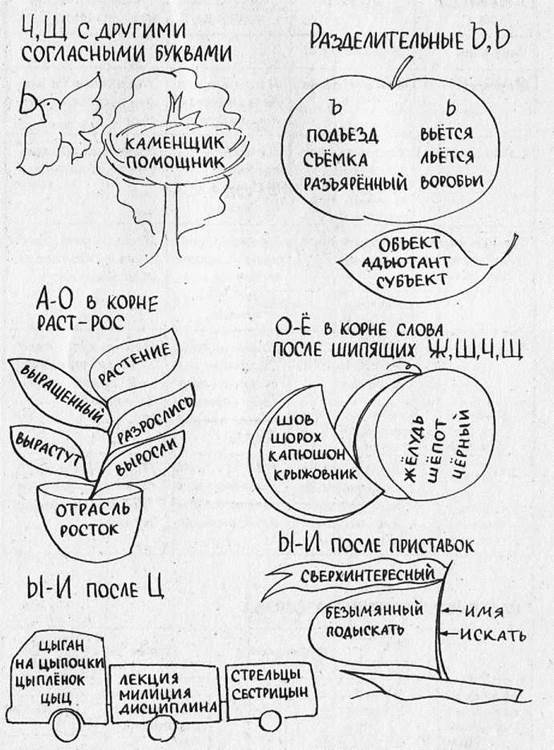 Ч,Щ С ДРУГИМИ
СОГЛАСНЫМИ БУКВАМИ
Ь
КАМЕНЩИК
ПОМОЩНИК
РАЗДЕЛИТЕЛЬНЫЕ Ъ,Ь
Ъ
ПОДЪЕЗД
СЪЁМКА
РАЗЪЯРЁННЫЙ
Ь
ВЬЁТСЯ
ЛЬЁТСЯ
ВОРОБЬИ
ОБЪЕКТ
АДЪЮТАНТ
СУБЪЕКТ
А-О В КОРНЕ
РАСТ-РОС
РАСТЕНИЕ
ВЫРАЩЕННЫЙ
РАЗРОСЛИСЬ
ВЫРАСТУТ
ВЫРОСЛИ
ОТРАСЛЬ
РОСТОК
О-Ё В КОРНЕ СЛОВА
ПОСЛЕ ШИПЯЩИХ Ж,Ш,Ч,Щ
ШОВ
ШОРОХ
КАПЮШОН
КРЫЖОВНИК
ЖЁЛУДЬ
ШЁПОТ
ЧЁРНЫЙ
Ы-И ПОСЛЕ Ц
ЦЫГАН
НА ЦЫПОЧКИ
ЦЫПЛЁНОК
ЦЫЦ
ЛЕКЦИЯ
МИЛИЦИЯ
ДИСЦИПЛИНА
СТРЕЛЬЦЫ
СЕСТРИЦЫН
Ы-И ПОСЛЕ ПРИСТАВОК
СВЕРХИНТЕРЕСНЫЙ
БЕЗЫМЯННЫЙ
ПОДЫСКАТЬ
ИМЯ
ИСКАТЬ